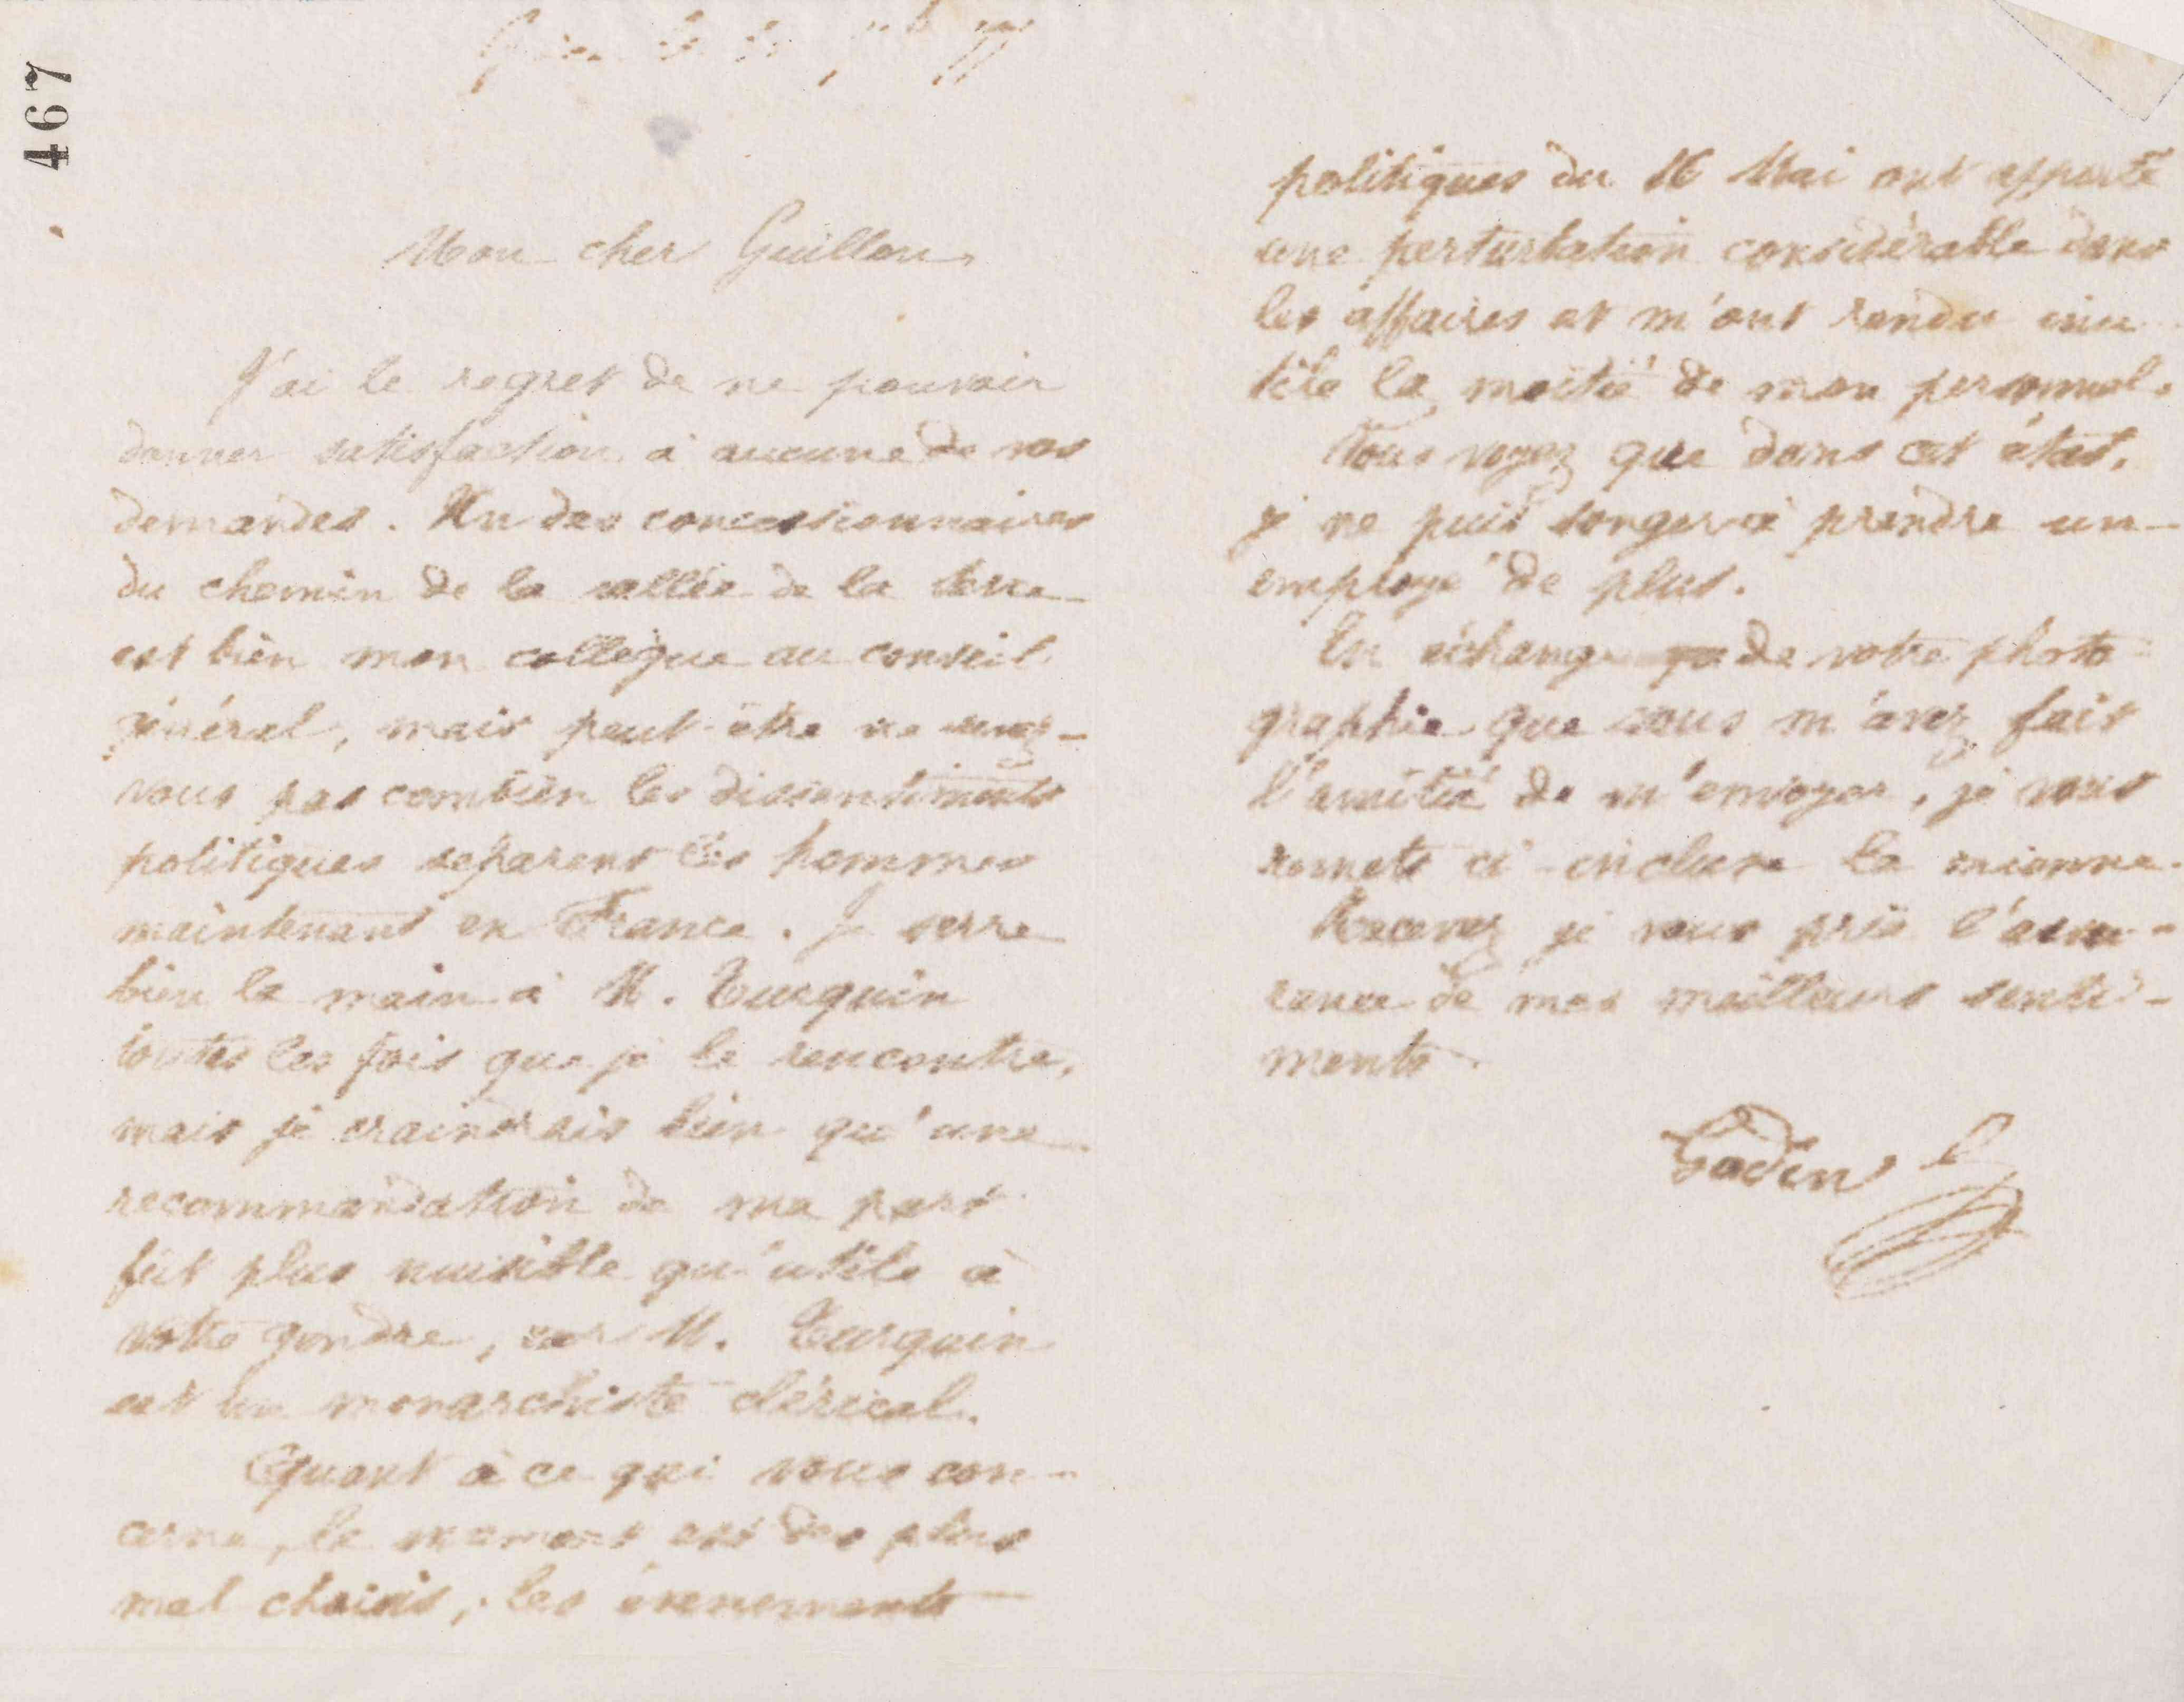 467
Guise le
77
Mon cher Guillon,
J'ai le regret de ne pouvoir
donner satisfaction à aucune de vos
demandes. Un des concessionnaires
du chemin de la vallée de la Serre
est bien mon collègue au conseil
général, mais peut-être ne
vous pas combien les dissentiments
politiques séparent les hommes
maintenant en France. Je serre
bien la main à M. Turquin
toutes les fois que je le rencontre,
mais je craindrais bien qu'une
recommandation de ma part
fut plus nuisible qu'utile à
votre gendre, car M. Turquin
est un monarchiste clérical.
Quant à ce qui vous con-
cerne, le moment est des plus
mal choisis, les évenements
politiques du 16 Mai ont apporté
une perturbation considérable dans
les affaires et m'ont rendu inu
tile la moitié de mon personnel.
Vous voyez que dans cet état,
je ne puis songer à prendre un
employé de plus.
En échange de votre photo
graphie que vous m'avez fait
l'amitié de m'envoyer, je vous
remets ci-incluse la mienne.
Recevez je vous prie l'assu-
rance de mes meilleurs senti-
ments.
Godin